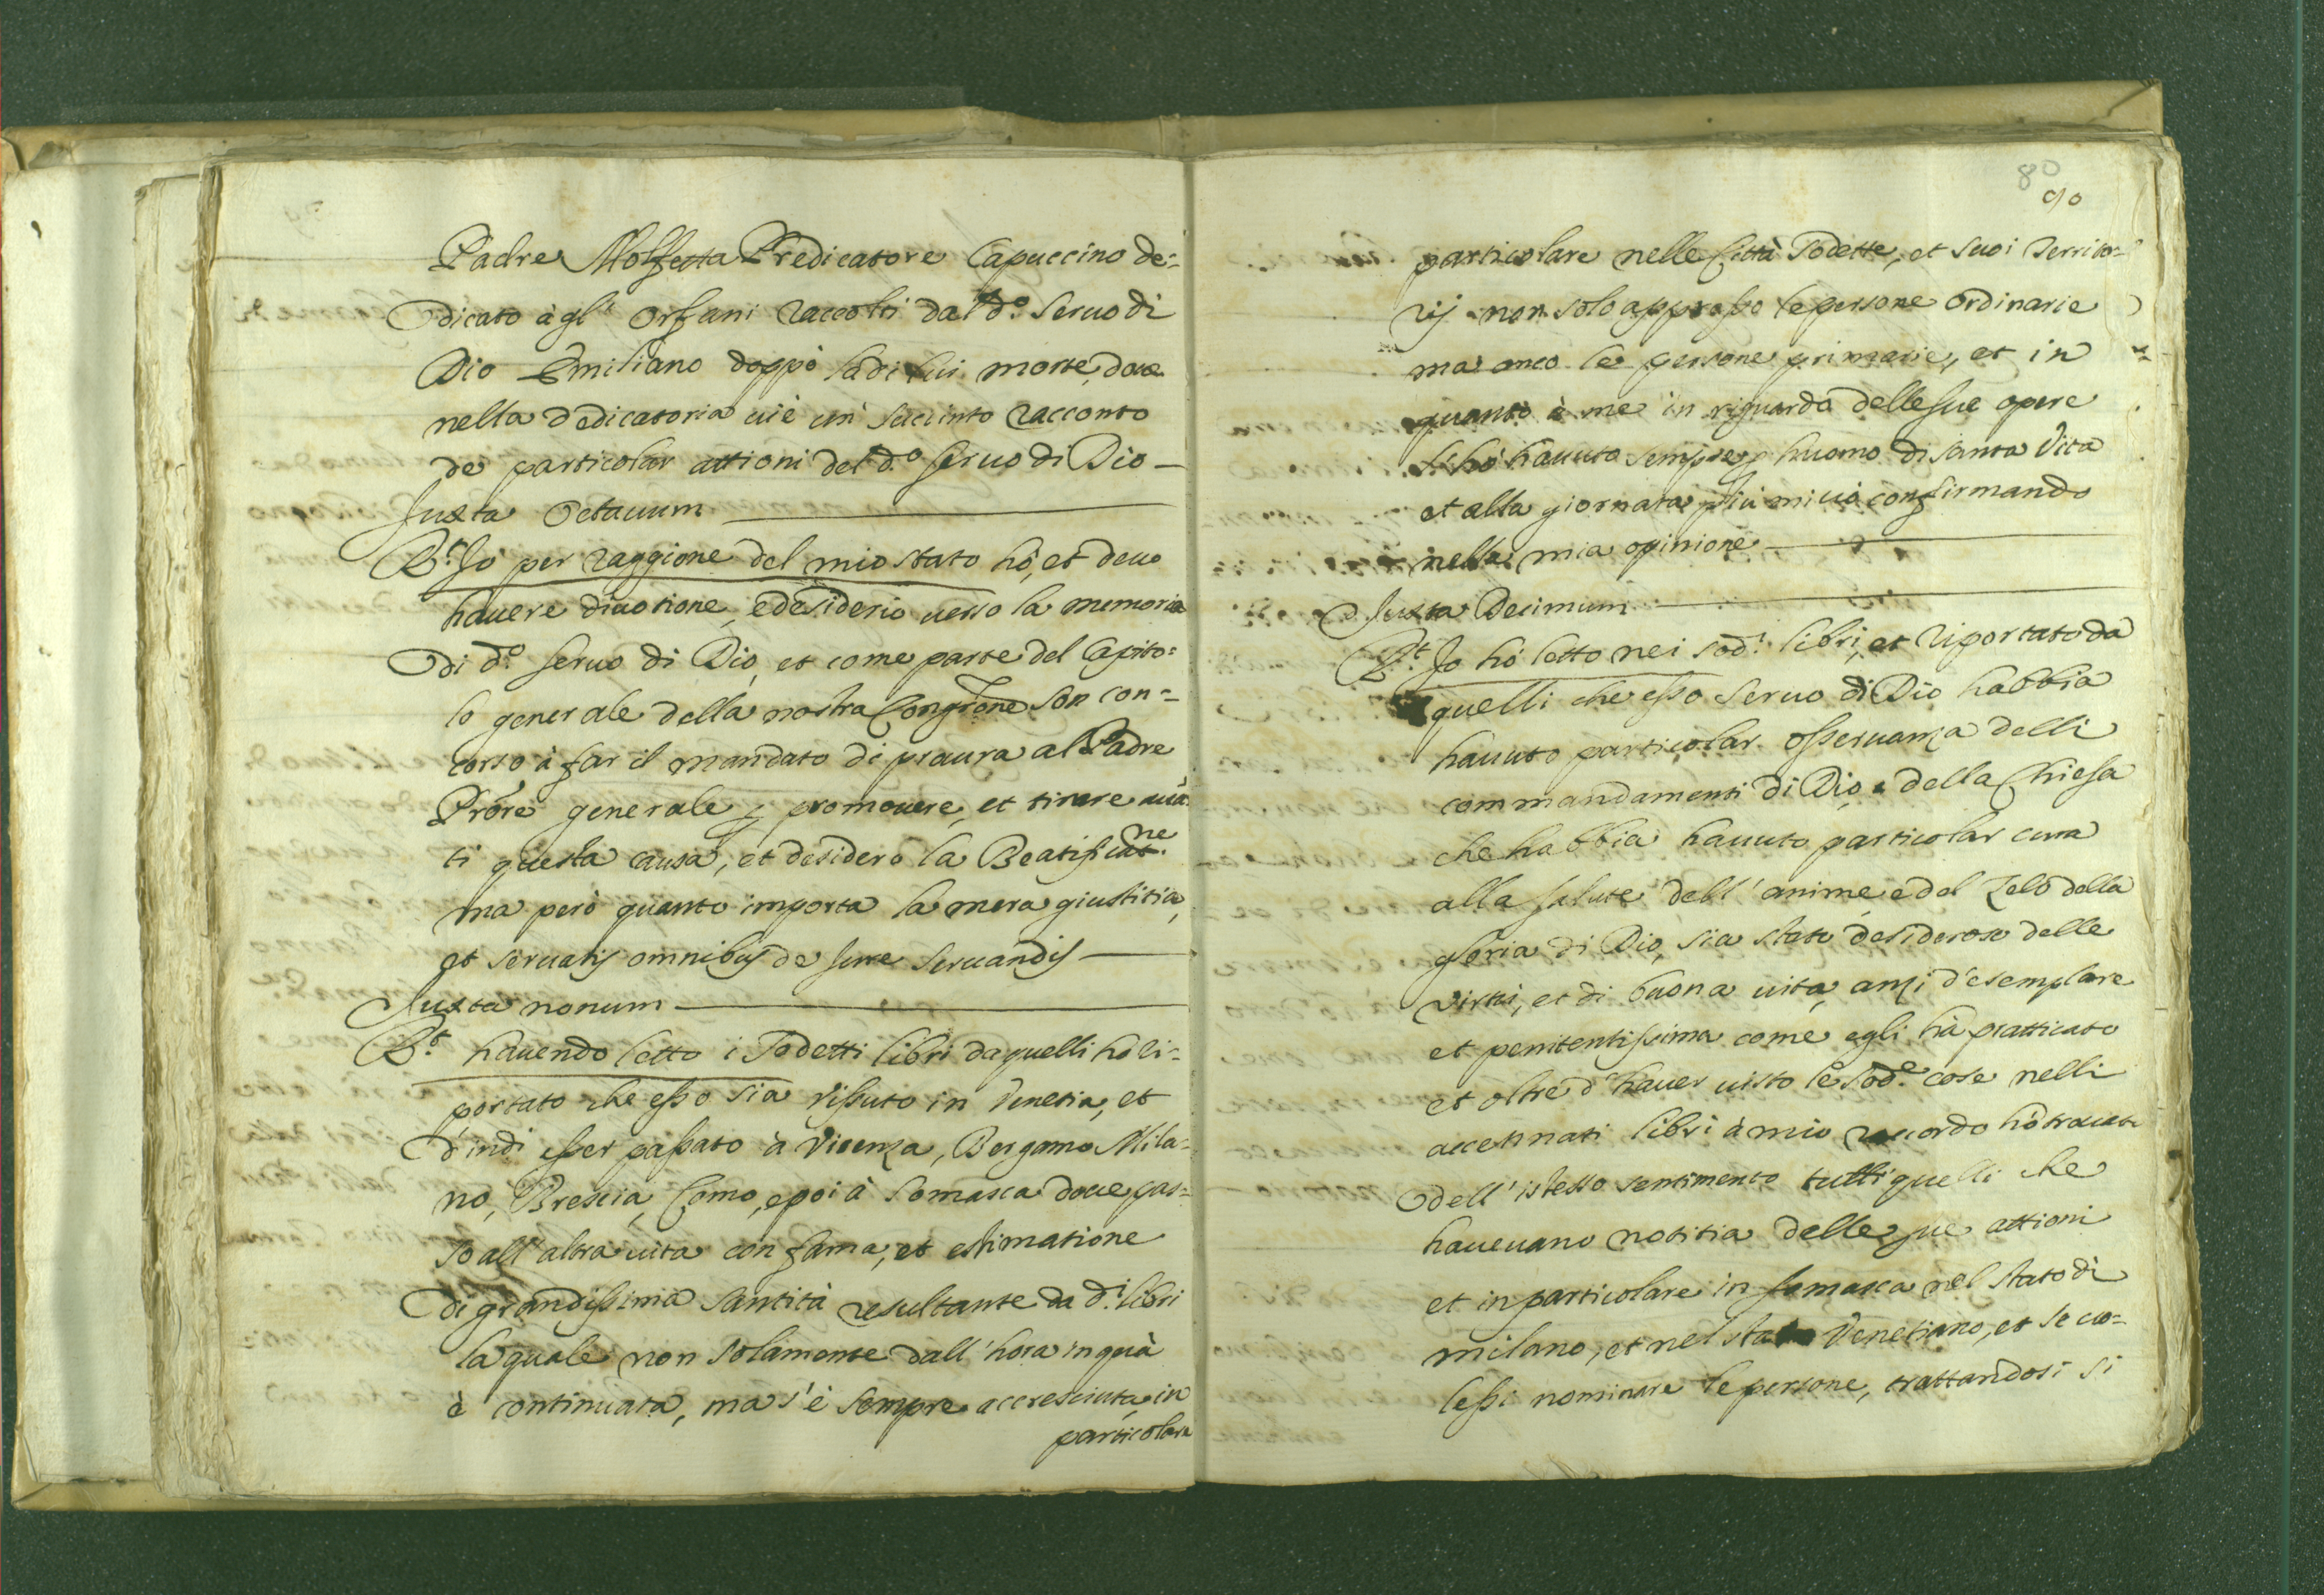 Padre Molfetta Predicatore Capuccino de=
dicato à gl' Orfani raccolti dal d.º Seruo di
Dio Emiliano doppò la di lui morte, doue
nella dedicatoria ui è un' succinto racconto
de particolar attioni del d.º seruo di Dio —
Juxta Octauum
R.t Jo per raggione del mio stato hò, et deuo
hauere diuotione, e desiderio uerso la memoria
di d.º seruo di Dio, et come parte del Capito=
lo generale della nostra Congr.ione son con=
corso à far il mandato di procura al Padre
Prõre generale p promouere, et tirare auã
ti questa causa, et desidero la Beatificat.ne
ma però quanto importa la mera giustitia,
et seruatis omnibus de jure seruandis —
Juxta nonum
R.t hauendo letto i Sodetti libri da quelli hò ri=
portato che esso sia vissuto in Venetia, et
d'indi esser passato à Vicenza, Bergamo Mila=
no, Brescia, Como, e poi à Somasca doue pas=
sò all' altra uita con fama, et estimatione
di grandissima santità resultante da d.i libri
la quale non solamente dall' hora in quà
è continuata, ma s'è sempre accresciuta, in
particolare
80
90
particolare nelle Città Sodette, et suoi territo=
rij non solo appresso le persone ordinarie
ma anco le persone primarie, et in
quanto à me in riguardo delle sue opere
l'hò hauuto sempre p huomo di santa Vita
et alla giornata più mi uò confirmando
nella mia opinione —
Juxta Decimum
R.t Jo hò letto nei sod.i libri, et riportato da
quelli che esso seruo di Dio habbia
hauuto particolar osseruanza delli
commandamenti di Dio, e della Chiesa
che habbia hauuto particolar cura
alla salute dell' anime, e del zelo della
gloria di Dio, sia stato desideroso delle
virtù, et di buona uita, anzi d'esemplare
et penitentissima come egli hà pratticato
et oltre d' hauer uisto le sod.e cose nelli
accennati libri à mio raccordo hò trouato
dell' istesso sentimento tutti quelli che
haueuano notitia delle sue attioni
et in particolare in somasca nel stato di
milano, et nel stato Venetiano, et se uo=
lessi nominare le persone, trattandosi si